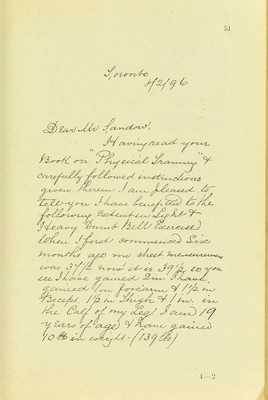 51
Toronto
4/2/96
Dear Mr Sandow,
Having read your
Book on "Physical Training" &
carefully followed instructions
given therein I am pleased to
tell you I have benefited to the
following extent in Light &
Heavy Dumb Bell Exercise
When I first commenced Six
months ago my chest measurement
was 37½ now it is 39½ so you
see I have gained 2 in I have
gained 1 in forearm & 1½ in
Biceps, 1½ in Thigh & 1 in. in
the Calf of my Leg I am 19
years of age & have gained
10 lb in weight. (139 lb)
4—2